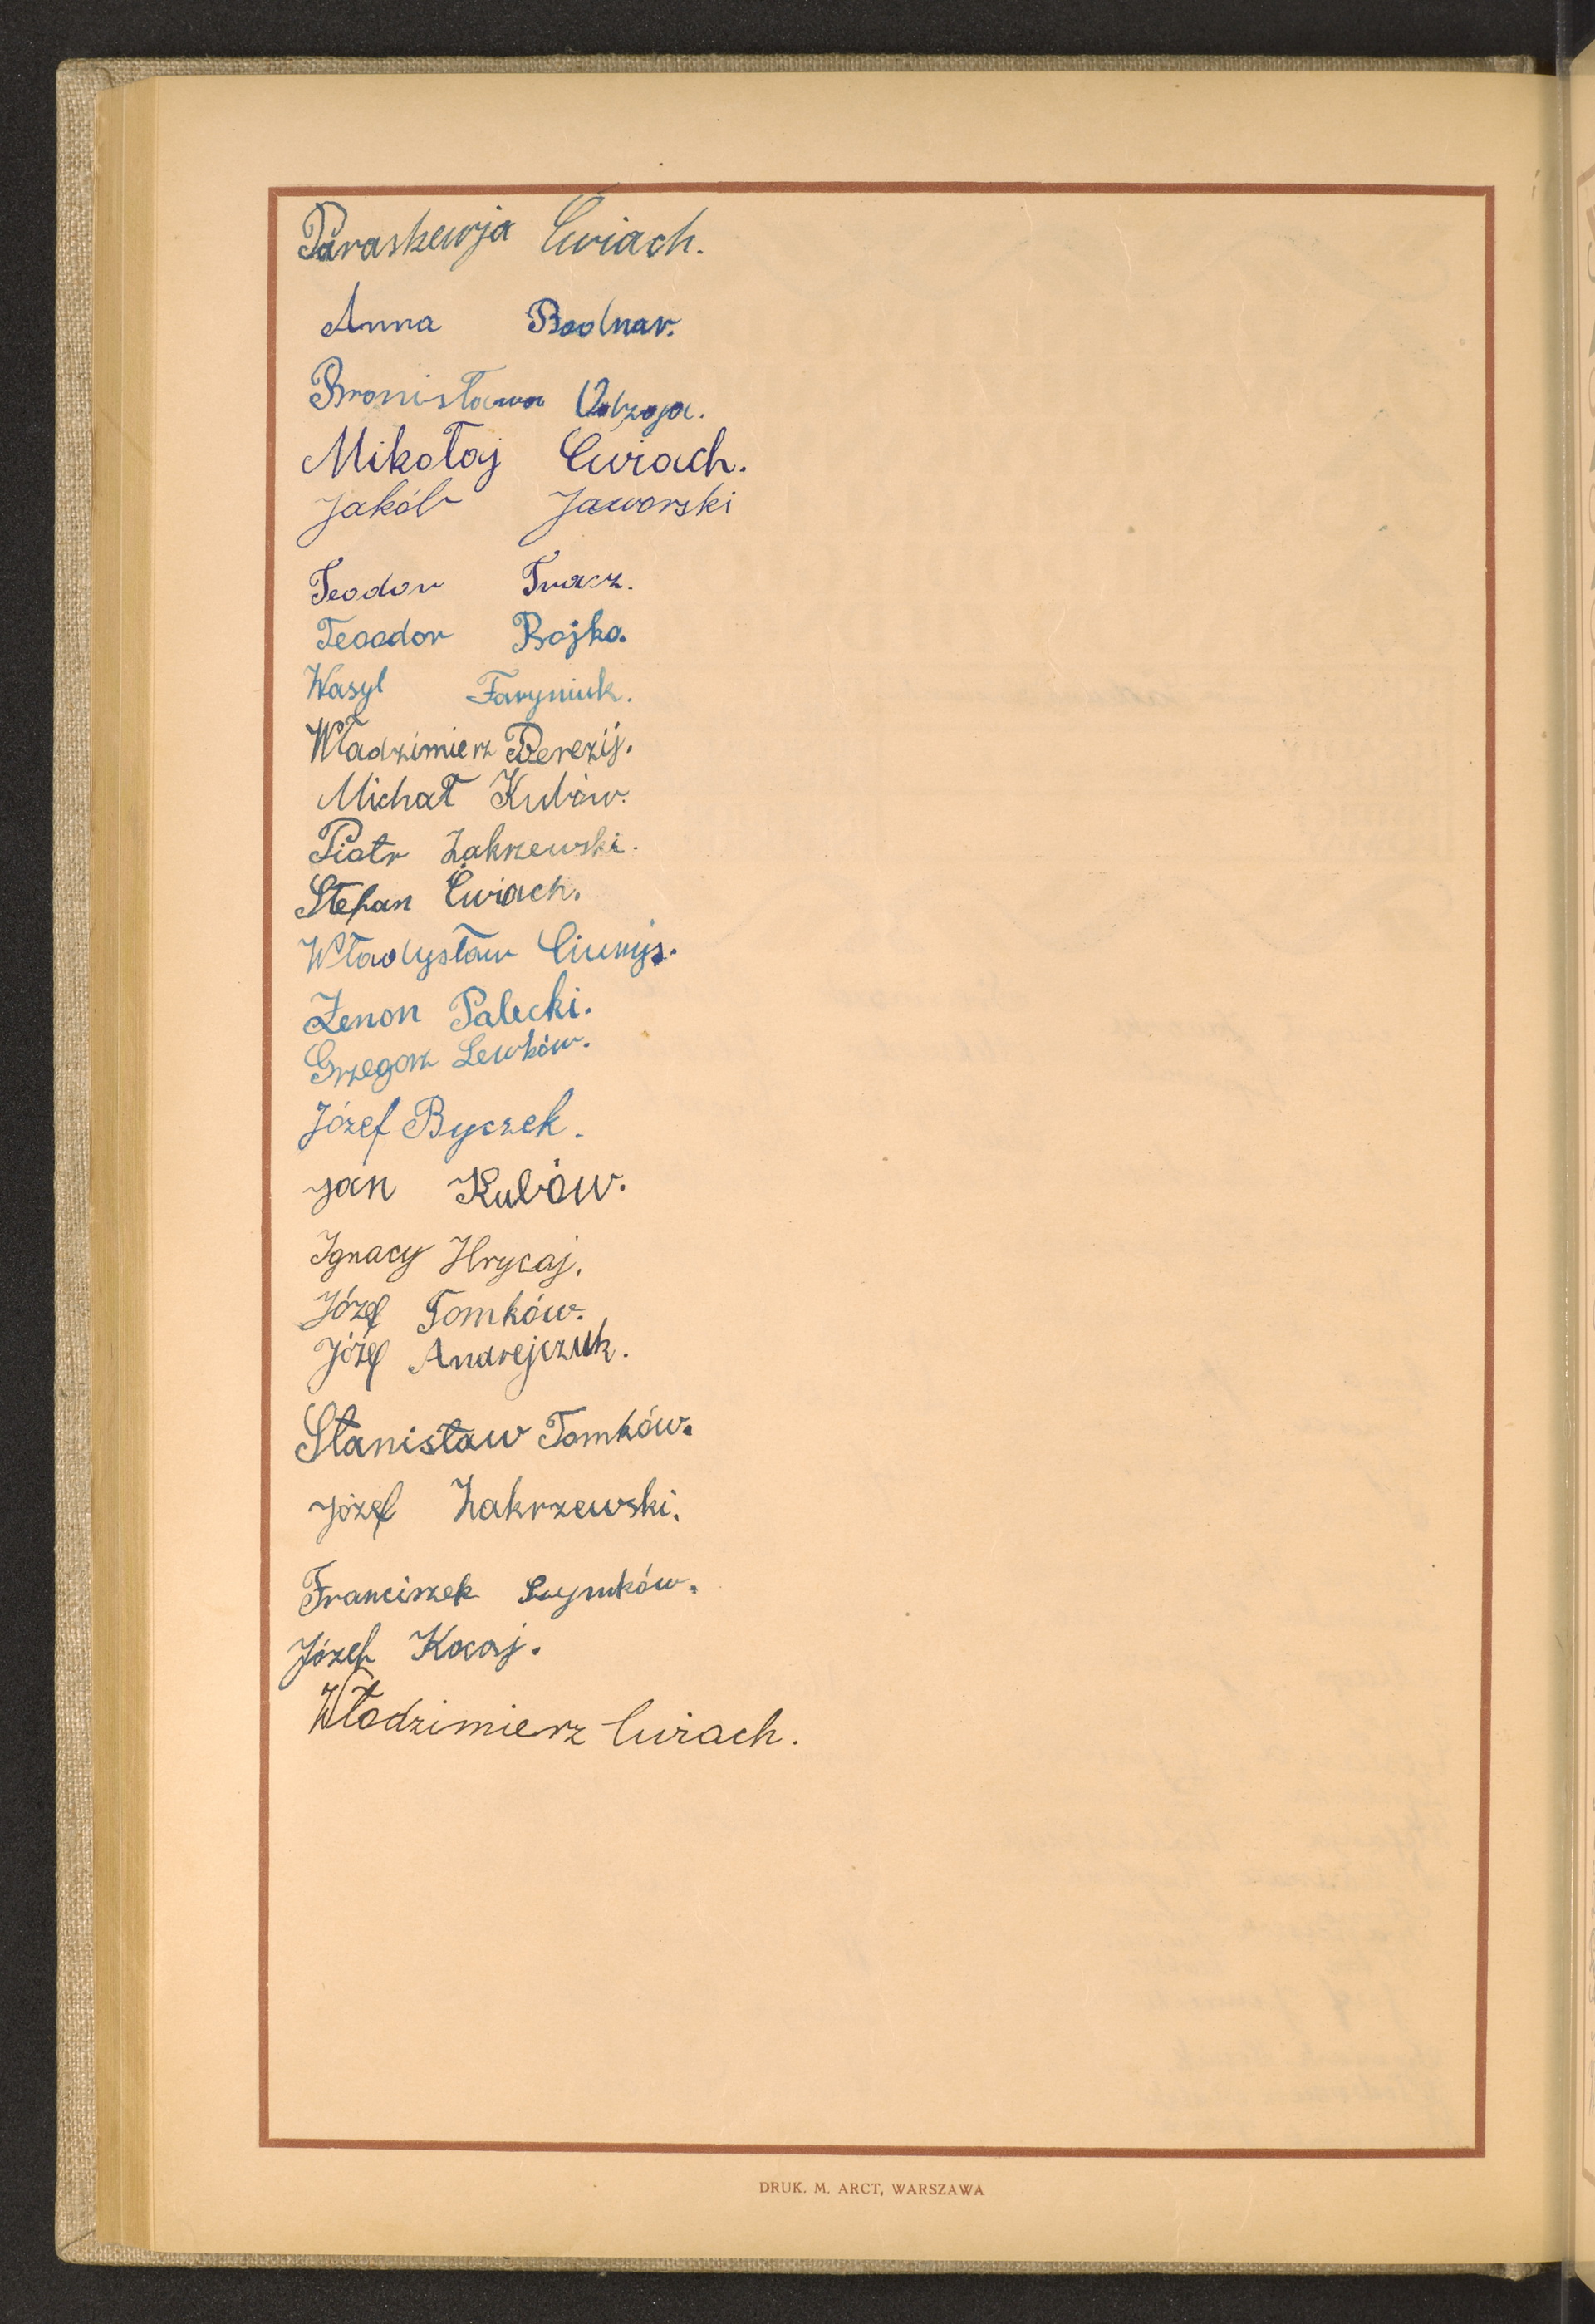 Paraskewja Ćwiach.
Anna Bodnar.
Bronisława
Mikołaj Cwiach.
Jakób Jaworski
Teodor Tracz.
Teoodor Bojko.
Wasyl Faryniuk.
Władzimierz Derezij.
Michał Kubów.
Piotr Zakrzewski.
Stefan Ćwiach.
Władysław
Zenon Palecki.
Grzegorz Lewków.
Józef Byczek.
Jan Kubów.
Ignacy Hrycaj.
Józef Tomków.
Józef Andrejczuk.
Stanisław Tomków.
Józef Zakrzewski.
Franciszek
Józef Kocaj.
Włodzimierz Cwiach.
DRUK. M. ARCT, WARSZAWA